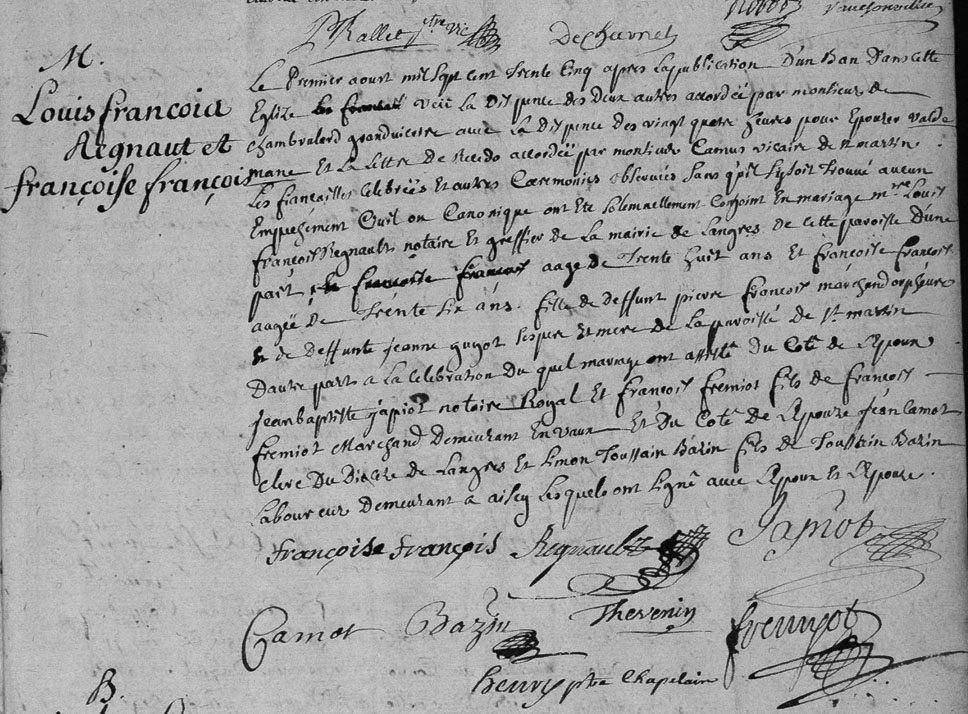 P Rallet ptre vic
De Charnet
M.
Louis françois
Regnaut et
françoise françois
Le Premier aoust mil sept cent trente cinq apres la publication d'un Ban Dans cette
Eglize veüe la Dispence des Deux autres accordée par monsieur de
grand vicaire avec La Dispence des vingt quatre heures pour Epouser Valde
mane Et La Lettre De Recedo accordeë par monsieur Camus vicaire de st martin
Les fiançailles Celebreës Et autres Ceremonies observees sans qu'il sy soit Trouvé aucun
Empeschement Civil ou Canonique ont Eté solemnellement Conjoint En mariage mtre Louis
françois Regnault notaire Et greffier de La mairie de Langres de Cette paroisse D'une
part aagé De Trente huit ans Et françoise françois
aageë De Trente six ans. fille de deffunt pierre françois marchand orphevre
Et de deffunte jeanne guyot ses pere Et mere de La paroisse de st martin
Dautre part a La Celebration Du quel mariage ont assisté Du Coté de L'Epoux
jean baptiste japiot notaire Royal Et françois fremiot fils de françois
fremiot Marchand Demeurant En vaux Et Du Coté de L'Epouze jean Camot
clerc Du Dioceze de Langres Et simon Toussain Bazin fils de Toussain Bazin
Laboureur Demeurant a aisey Lesquels ont signé avec L'Epoux Et L'Epouze.
françoise françois Regnault Japiot
Camot Bazin Thevenin fremyot
henry ptre Chapelain
B.